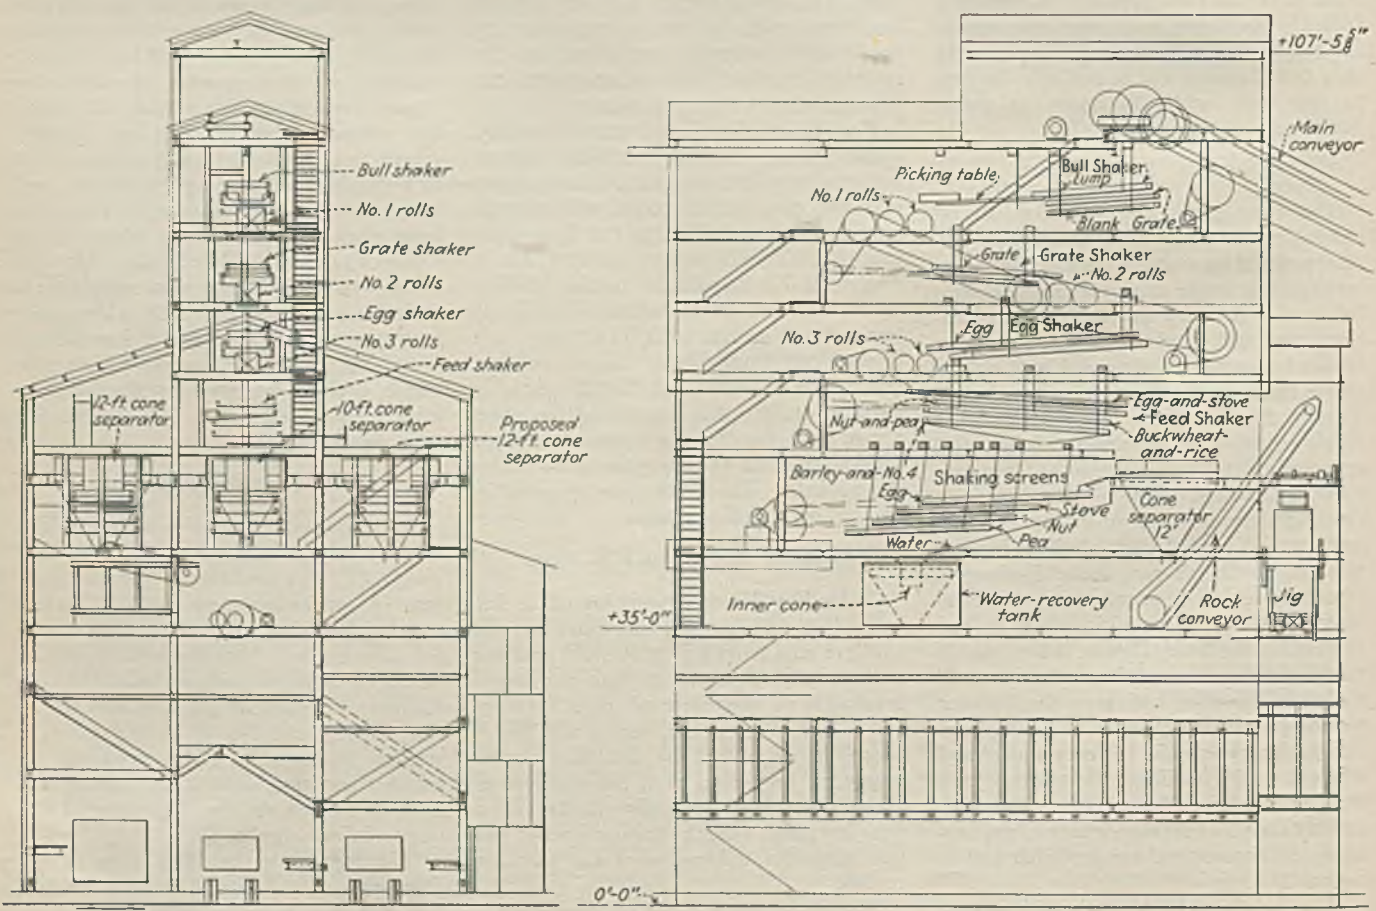 Bull shaker
No. 1 rolls
Grate shaker
No. 2 rolls
Egg shaker
No. 3 rolls
Feed shaker
12-ft. cone
separator
10-ft. cone
separator
Proposed
12-ft. cone
separator
+107'-5 5/8"
Main
conveyor
Picking table
Bull Shaker
Lump
No. 1 rolls
Blank Grate
Grate
Grate Shaker
No. 2 rolls
No. 3 rolls
Egg
Egg Shaker
Egg-and-stove
Nut-and-pea
Feed Shaker
Buckwheat-
and-rice
Barley-and-No. 4
Shaking screens
Egg
Stove
Nut
Pea
Cone
separator
12'
Water
Inner cone
Water-recovery
tank
Rock
conveyor
Jig
+35'-0"
0'-0"